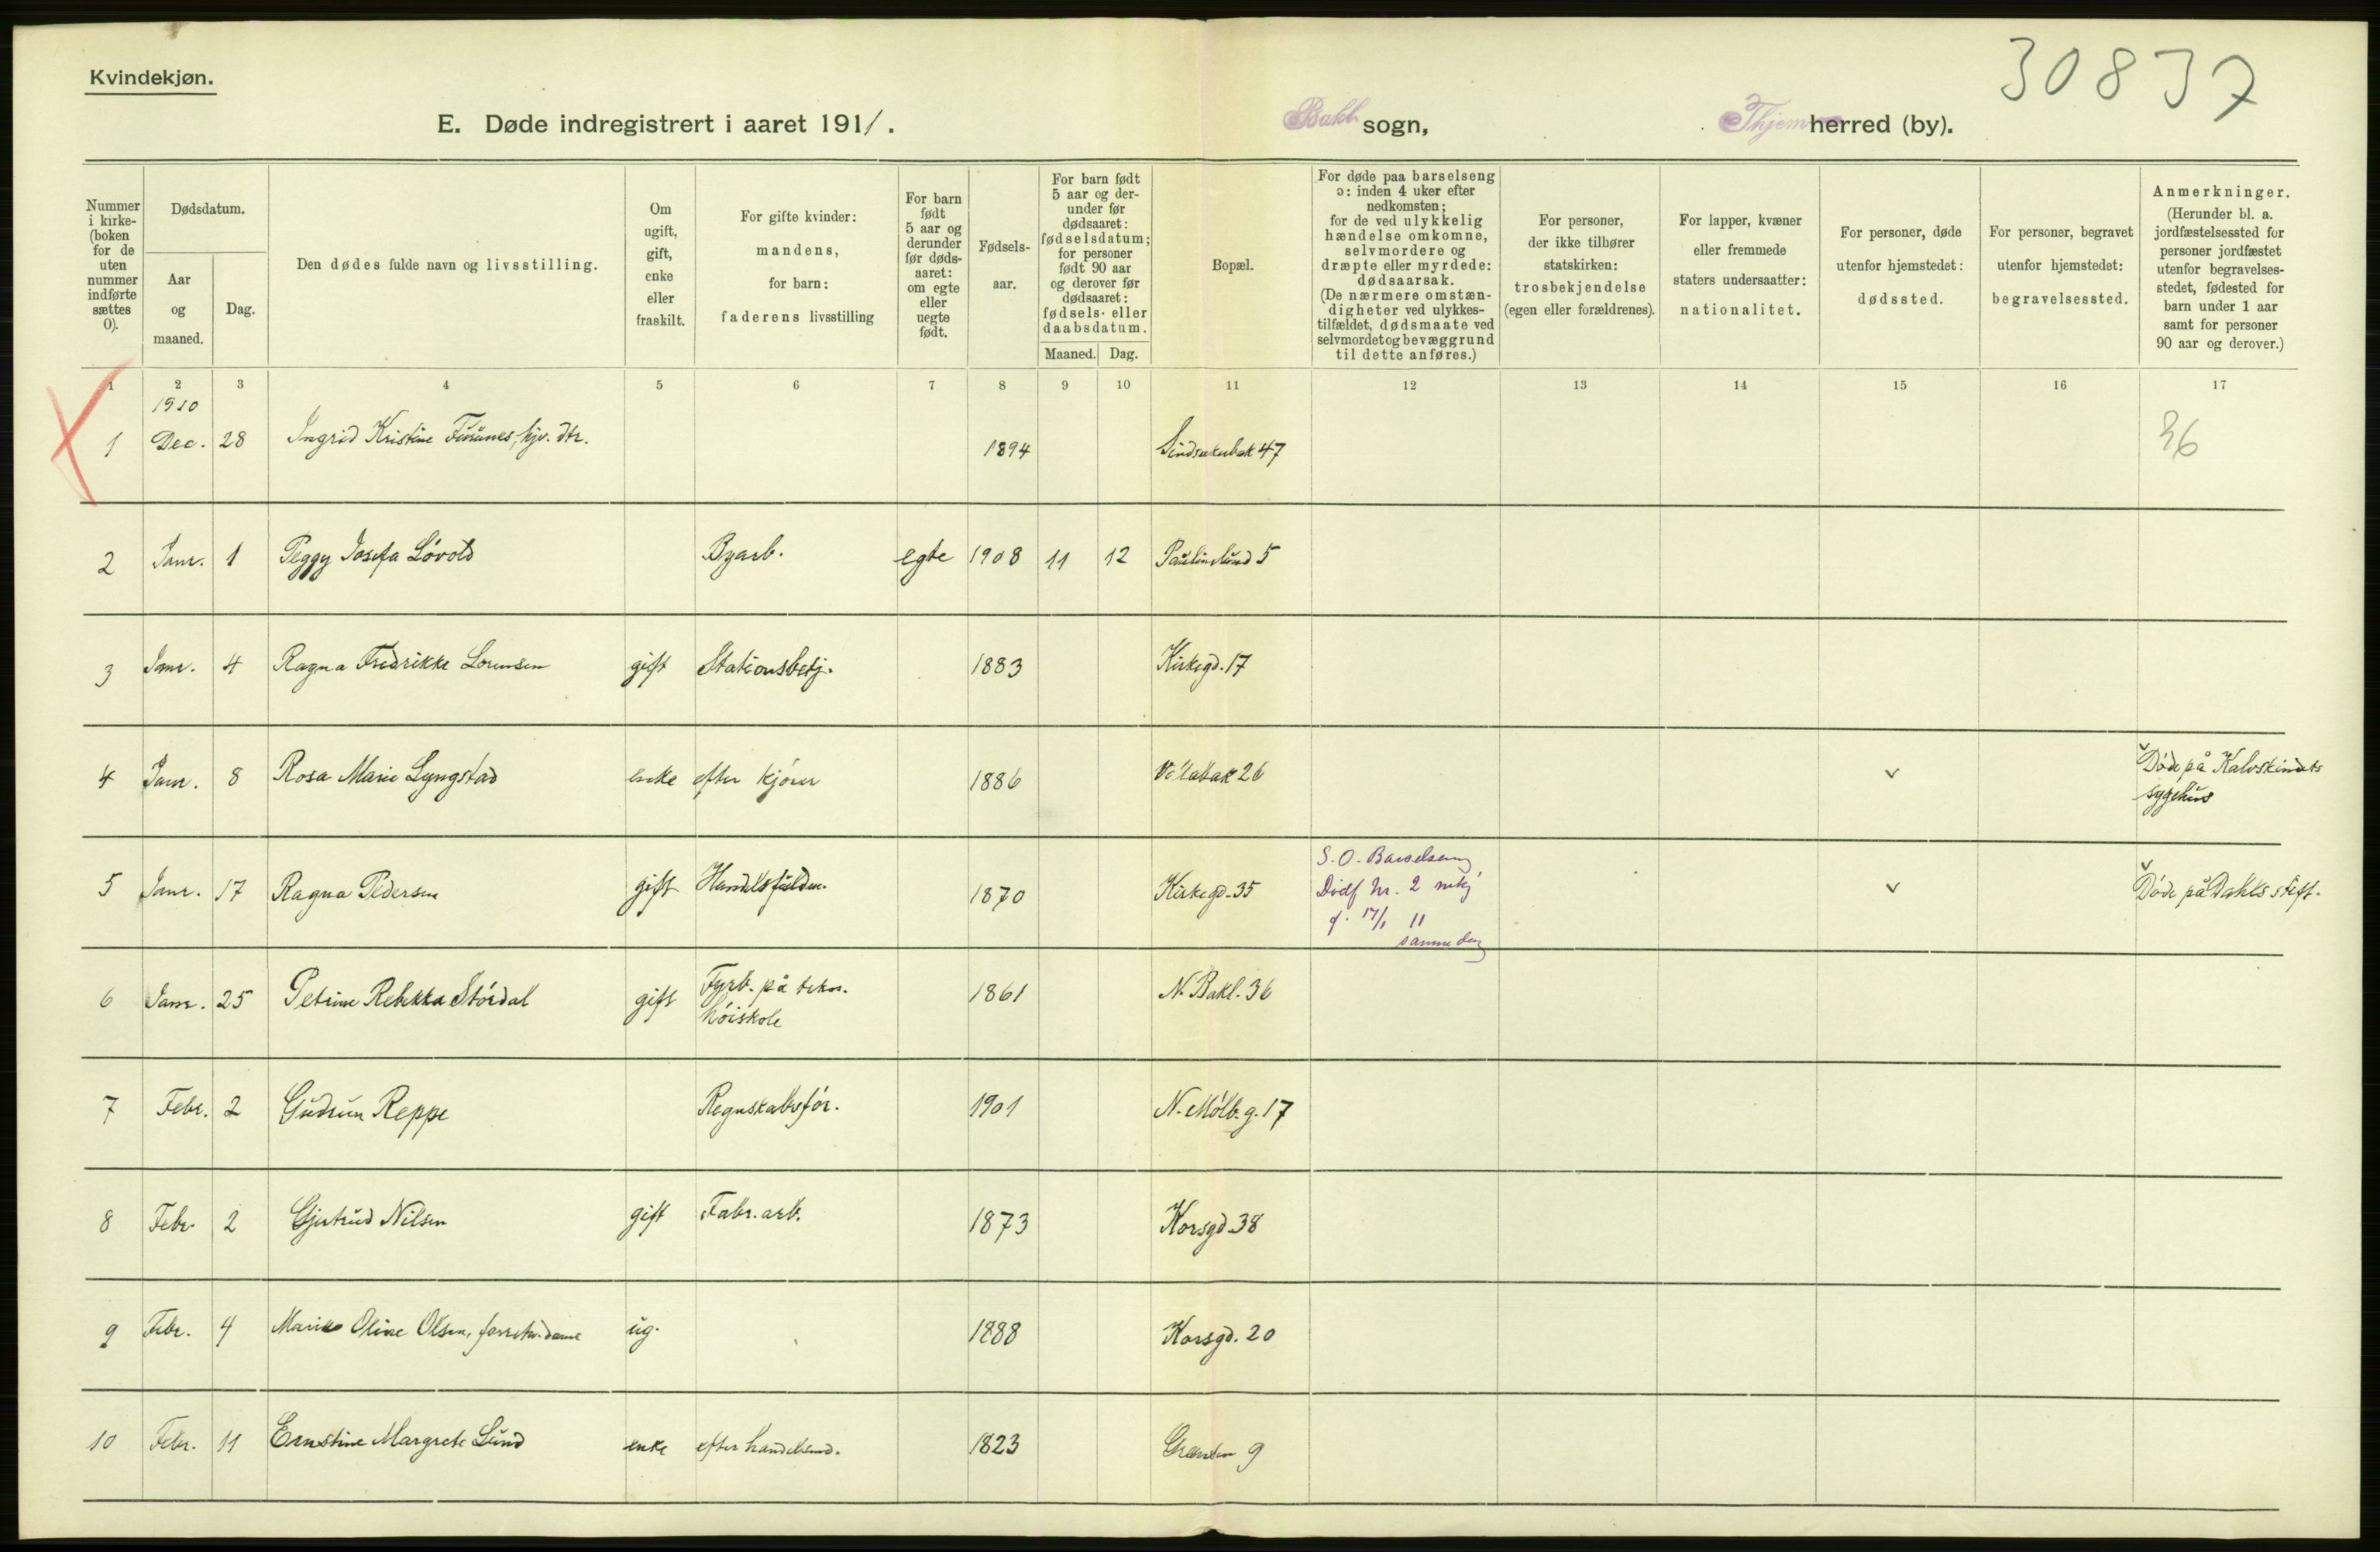 30837
Kvindekjøn.
E. Døde indregistrert i aaret 1911.
Bakl. sogn,
Thjem herred (by).
Nummer i kirke-(boken for de uten nummer indførte sættes 0).
Dødsdatum.
Aar og maaned.
Dag.
Den dødes fulde navn og livsstilling.
Om ugift, gift, enke eller fraskilt.
For gifte kvinder: mandens, for barn: faderens livsstilling
For barn født 5 aar og derunder før døds-aaret: om egte eller uegte født.
Fødsels-aar.
For barn født 5 aar og der-under før dødsaaret: fødselsdatum; for personer født 90 aar og derover før dødsaaret: fødsels- eller daabsdatum.
Maaned. Dag.
Bopæl.
For døde paa barselseng ɔ: inden 4 uker efter nedkomsten; for de ved ulykkelig hændelse omkomne, selvmordere og dræpte eller myrdede: dødsaarsak. (De nærmere omstæn-digheter ved ulykkes-tilfældet, dødsmaate ved selvmordet og bevæggrund til dette anføres.)
For personer, der ikke tilhører statskirken: trosbekjendelse (egen eller forældrenes).
For lapper, kvæner eller fremmede staters undersaatter: nationalitet.
For personer, døde utenfor hjemstedet: dødssted.
For personer, begravet utenfor hjemstedet: begravelsessted.
Anmerkninger. (Herunder bl. a. jordfæstelsessted for personer jordfæstet utenfor begravelses-stedet, fødested for barn under 1 aar samt for personer 90 aar og derover.)
1 2 3 4 5 6 7 8 9 10 11 12 13 14 15 16 17
1910
1 Dec. 28 Ingrid Kristine hjv. dtr. 1894 47 36
2 Janr. 1 Peggy Josefa Løvold Byarb. egte 1908 11 12 Paulinelund 5
3 Janr. 4 Ragna Fredrikke Lorensen gift Stationsbetj. 1883 Kirkegd. 17
4 Janr. 8 Rosa Marie Lyngstad enke efter kjører 1886 Vollabak 26 v Døde på Kalvskindets
sygehus
S. O. Barselseng
5 Janr. 17 Ragna Pedersen gift 1870 Kirkegd. 35 Dødf nr. 2 mkj v Døde på Dahls stift.
f. 17/1 11
samme dag
6 Janr. 25 Petrine Rebekka Stördal gift Fyrb. på tekn. 1861 N. Bakl. 36
höiskole
7 Febr. 2 Gudrun Reppe Regnskabsför. 1901 N. Møllb.g. 17
8 Febr. 2 Gjertrud Nilsen gift Fabr.arb. 1873 Korsgd. 38
9 Febr. 4 Oline Olsen, forretn.dame ug. 1888 Korsgd. 20
10 Febr. 11 Ernstine Margrete Lund enke efter handelsmd. 1823 Grænsen 9